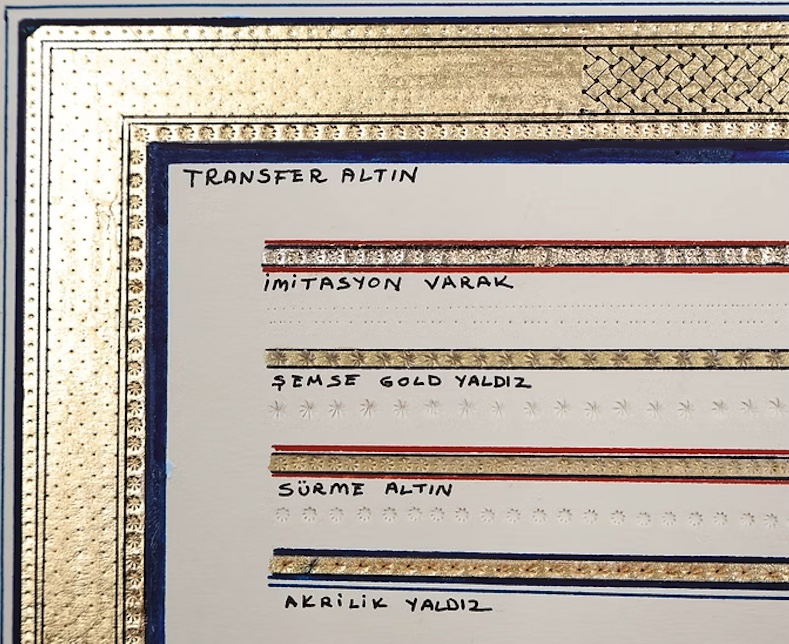 TRANSFER ALTIN
İMİTASYON VARAK
ŞEMSE GOLD YALDIZ
SÜRME ALTIN
AKRİLİK YALDIZ